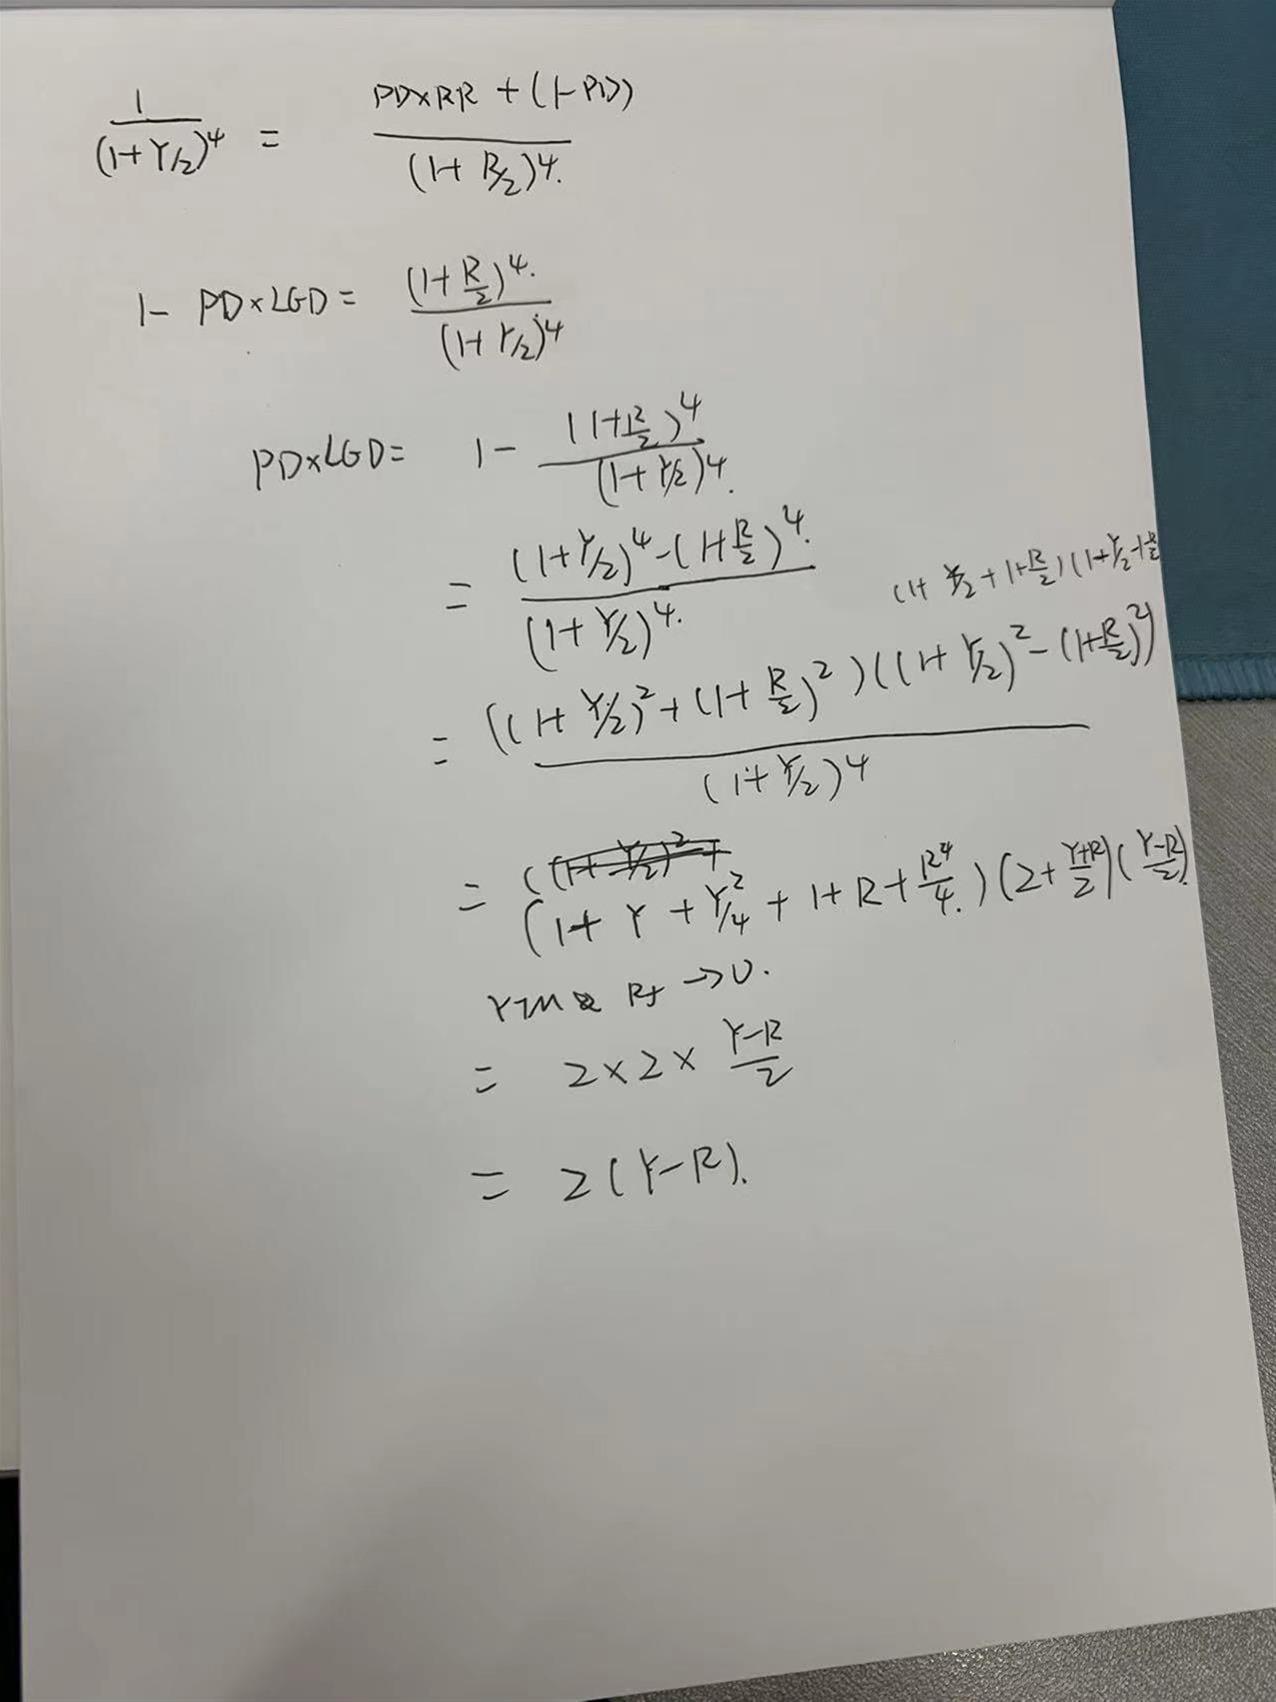 1/(1+Y/2)^4 = (PD×RR + (1-PD))/(1+R/2)^4.
1- PD×LGD = (1+R/2)^4./(1+Y/2)^4
PD×LGD = 1- (1+R/2)^4/(1+Y/2)^4.
= ((1+Y/2)^4-(1+R/2)^4.)/(1+Y/2)^4.
(1+Y/2+1+R/2)(1+Y/2-1-R/2
= ((1+Y/2)^2+(1+R/2)^2)((1+Y/2)^2-(1+R/2)^2)/(1+Y/2)^4
= (1+Y+Y^2/4+1+R+R^4/4.)(2+(Y+R)/2)((Y-R)/2).
YTM & Rf →0.
= 2×2×(Y-R)/2
= 2(Y-R).